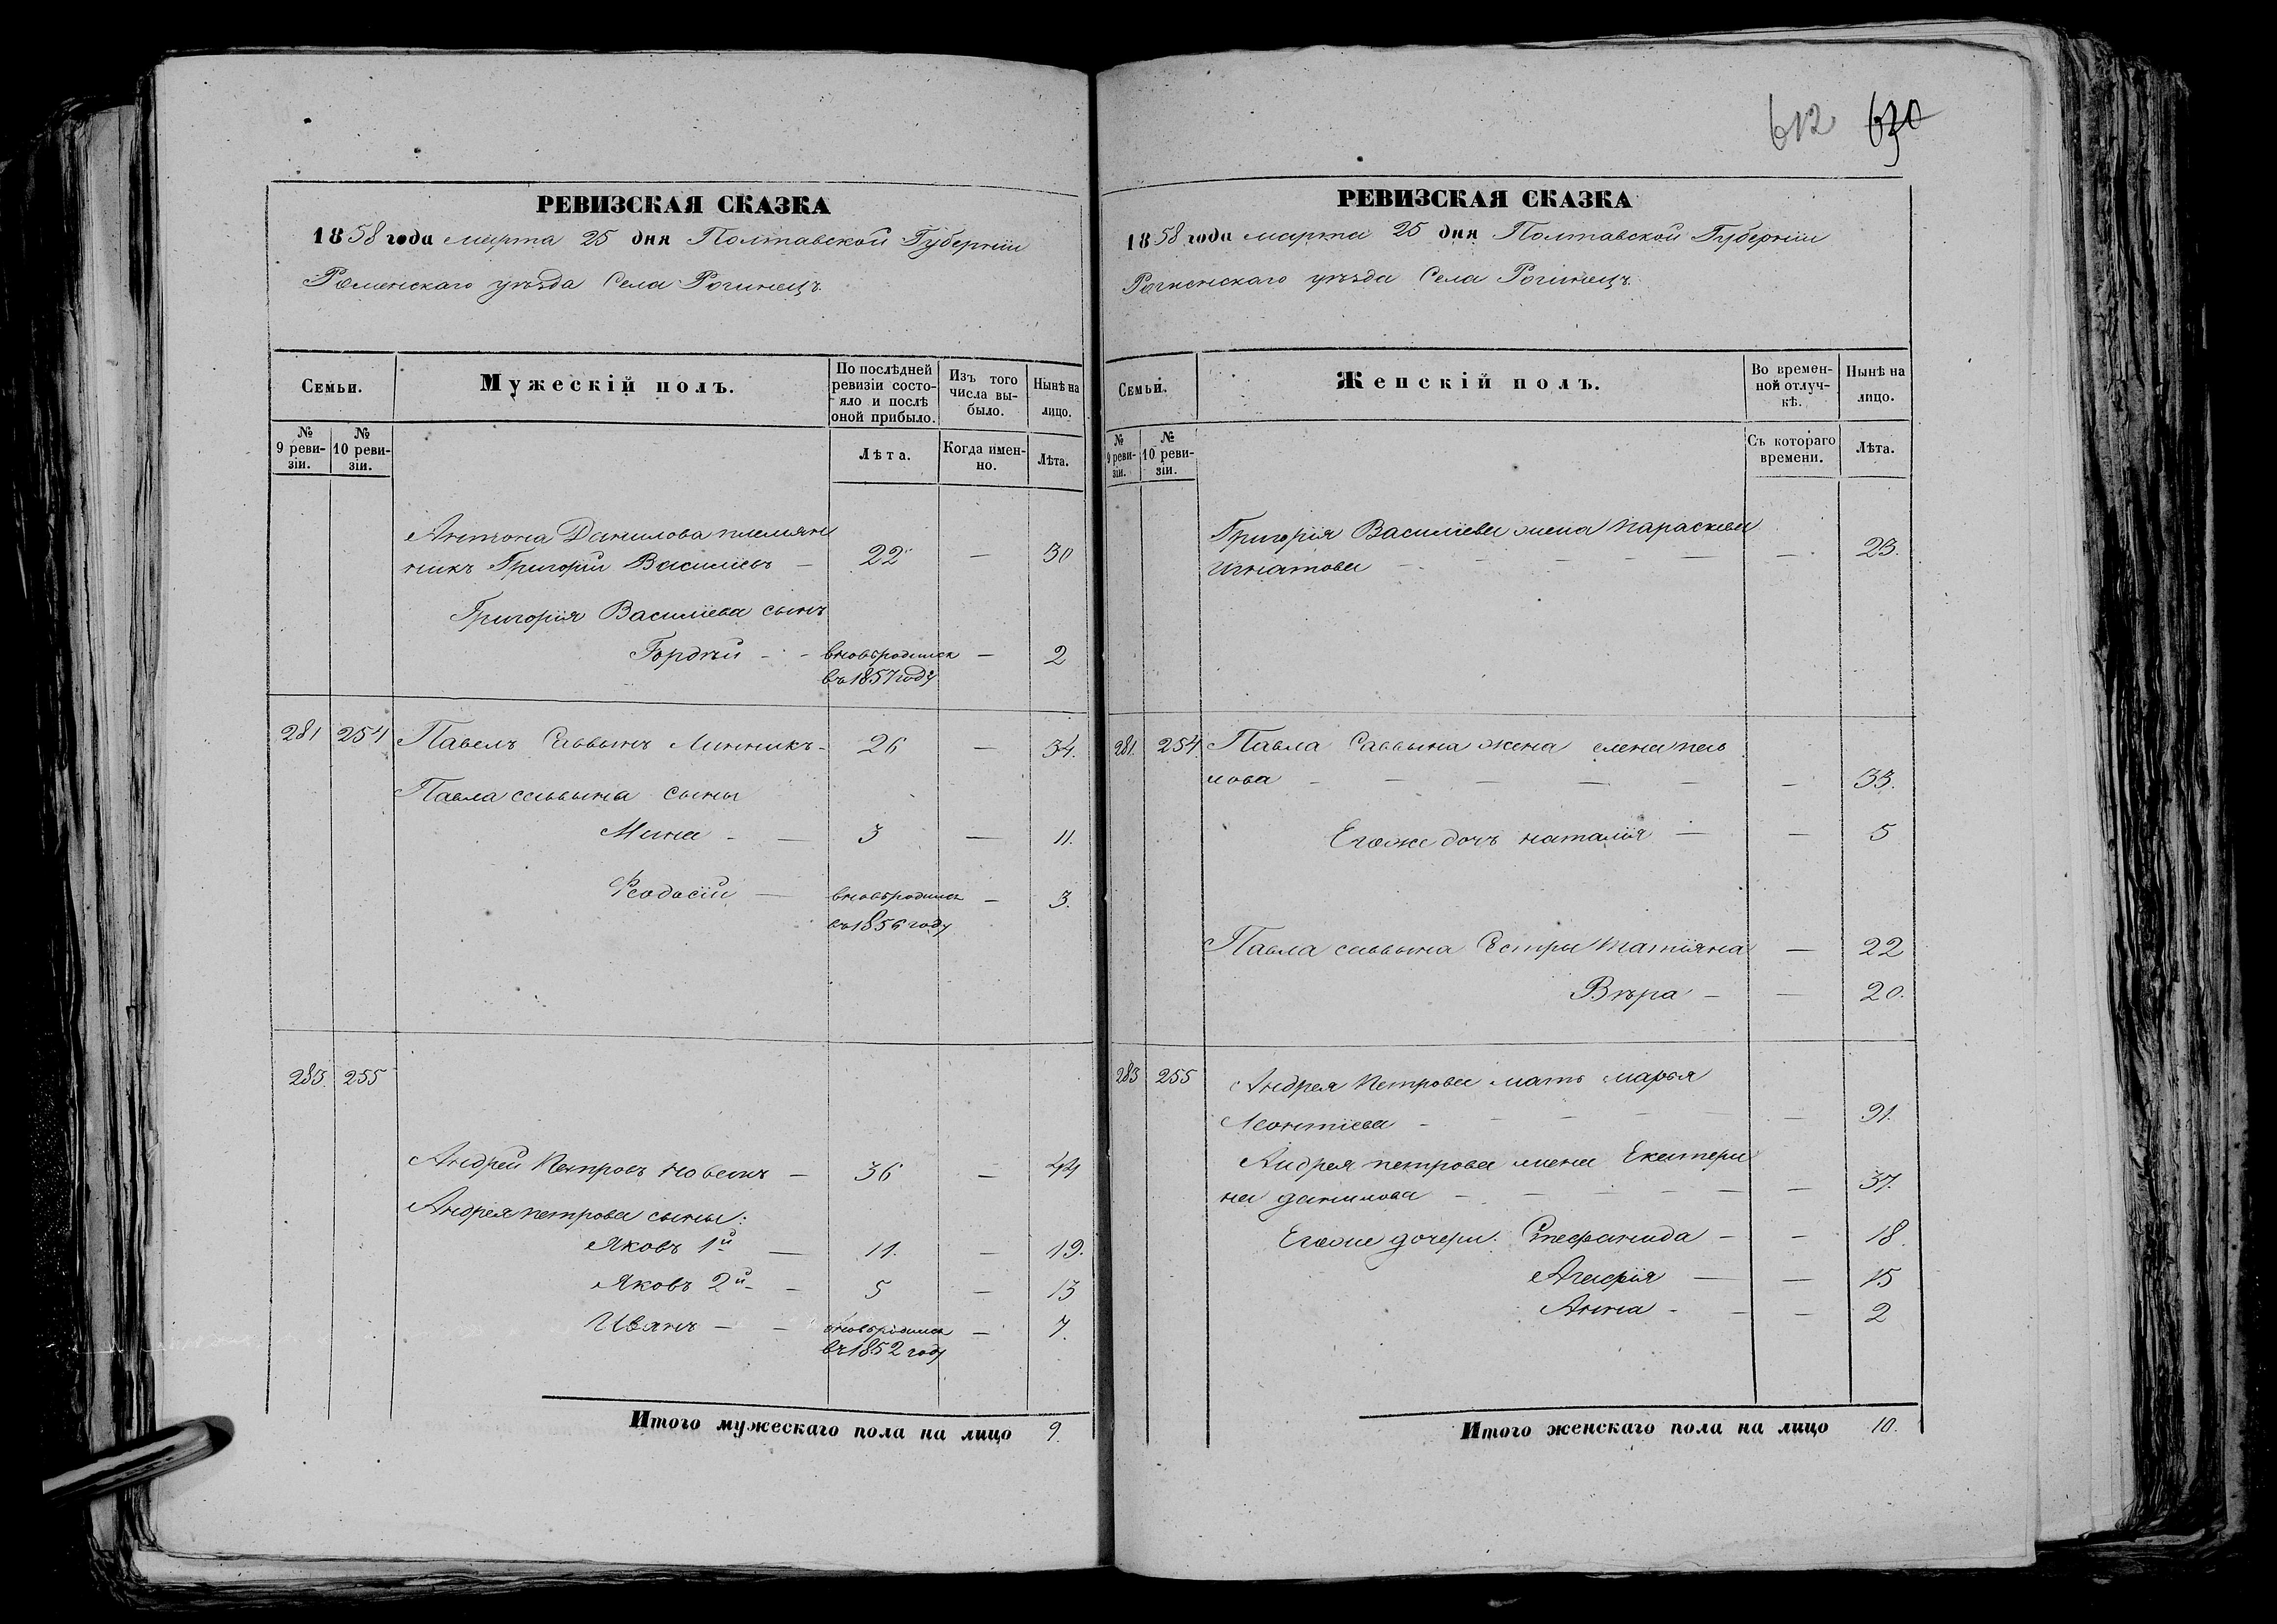 612 630
РЕВИЗСКАЯ СКАЗКА
1858 года марта 25 дня Полтавской Губерніи
Роменскаго уѣзда Села Рогинецъ.
Семьи.
Мужескій полъ.
По послѣдней ревизіи состояло и послѣ оной прибыло.
Изъ того числа выбыло.
Нынѣ на лицо.
№ 9 ревизіи.
№ 10 ревизіи.
Лѣта.
Когда именно.
Лѣта.
Антона Данилова племян
никъ Григорій Василіевъ — 22 — 30
Григорія Василіева сынъ
Гордѣй - - вновьродился — 2
въ 1857 году
281 254 Павелъ Саввинъ Линникъ - 26 — 34.
Павла саввина сыны
Мина - — 3 — 11.
Феодосій — вновьродился — 3.
въ 1856 году
283. 255
Андрей Петровъ — 36 — 44
Андрея петрова сыны:
Яковъ 1й — 11. — 19.
Яковъ 2й - - 5 — 13
Иванъ — - вновьродился — 7.
въ 1852 году
Итого мужескаго пола на лицо 9.
РЕВИЗСКАЯ СКАЗКА
1858 года марта 25 дня Полтавской Губерніи
Роменскаго уѣзда Села Рогинецъ.
Семьи.
Женскій полъ.
Во временной отлучкѣ.
Нынѣ на лицо.
№ 9 ревизіи.
№ 10 ревизіи.
Съ котораго времени.
Лѣта.
Григорія Василіева жена Параскева
Игнатова - - - - — — 23.
281. 254. Павла Саввина жена елена
лова - — — — - — 33.
Егоже дочь наталія — — 5
Павла саввина Сестры Татіяна — 22
Вѣра - — 20.
283 255 Андрея Петрова мать марья
Леонтіева - - - - - — 91.
Андрея петрова жена Екатери
на данилова - - - - - — 37.
Егоже дочери: Стефанида - - 18.
Агафія — — 15
Анна - - - 2
Итого женскаго пола на лицо 10.